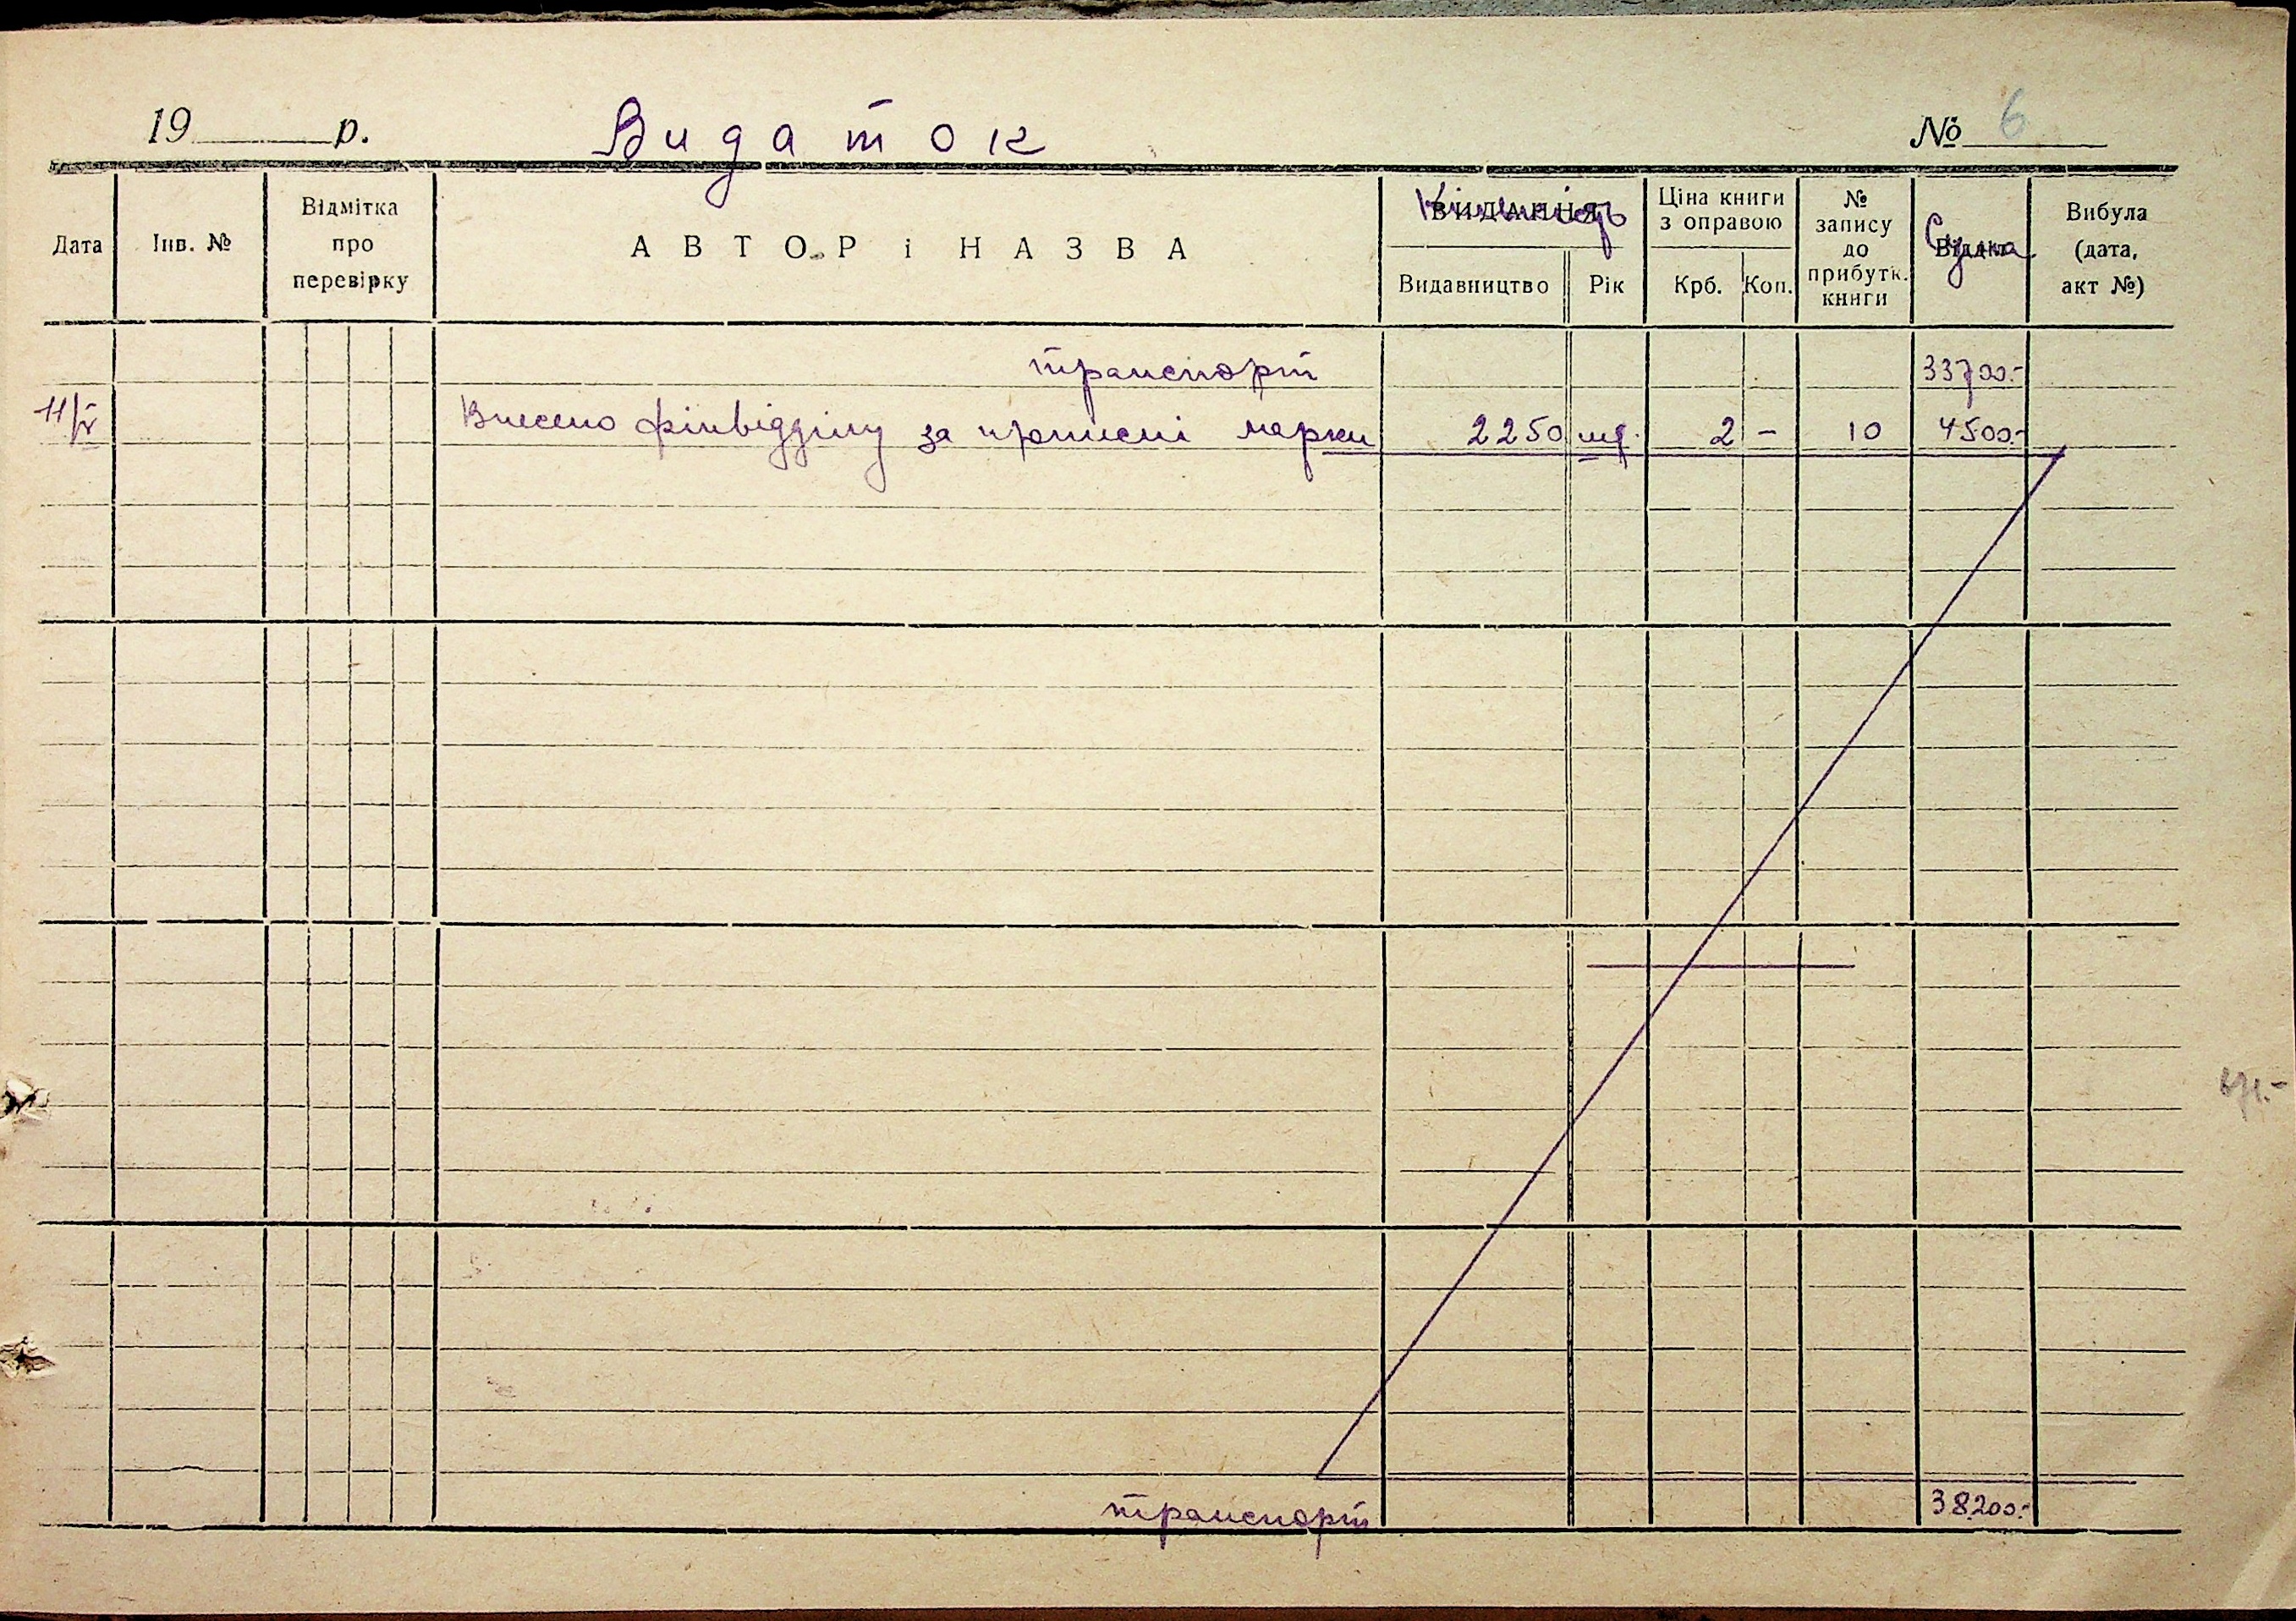 19____р. Видаток № 6
Дата
Інв. №
Відмітка
про
перевірку
АВТОР і НАЗВА
ВИДАННЯ
Кількість
Видавництво
Рік
Ціна книги
з оправою
Крб.
Коп.
№
запису
до
прибутк.
книги
Відділ
Сума
Вибула
(дата,
акт №)
транспорт 33700.-
11/V Внесено фінвідділу за прописні марки 2250 шт. 2 - 10 4500.-
транспорт 38200.-